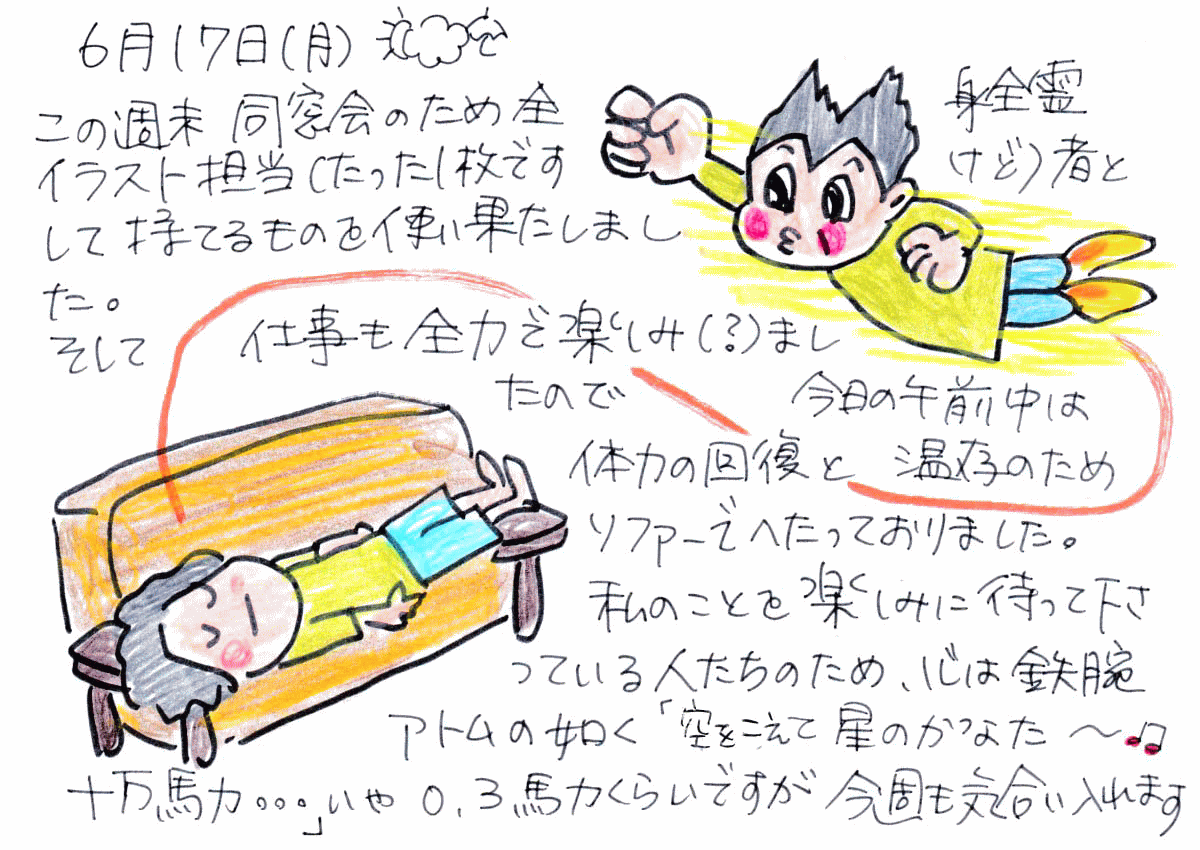 6月17日(月)
この週末 同窓会のため全身全霊
イラスト担当(たった1枚ですけど)者と
して捨てるものを使い果たしまし
た。
そして 仕事も全力で楽しみ(?)まし
たので 今日の午前中は
体力の回復と 温存のため
ソファーでへたっておりました。
私のことを楽しみに待って下さ
っている人たちのため、心は鉄腕
アトムの如く「空をこえて 星のかなた〜♫
十万馬力。。。」いや 0.3馬力くらいですが 今週も気合い入れます